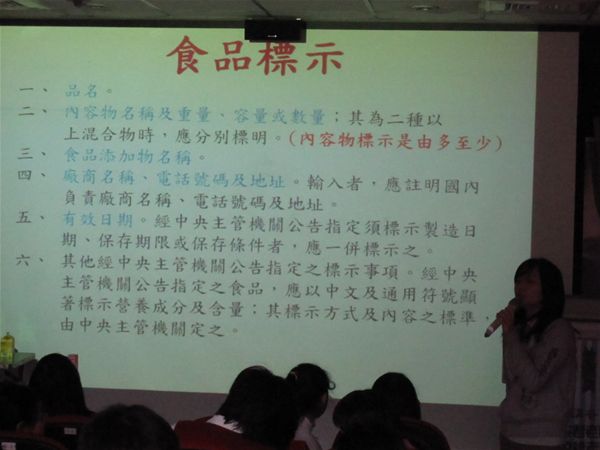 食品標示
一、 品名。
二、 內容物名稱及重量、容量或數量；其為二種以
上混合物時，應分別標明。(內容物標示是由多至少)
三、 食品添加物名稱。
四、 廠商名稱、電話號碼及地址。輸入者，應註明國內
負責廠商名稱、電話號碼及地址。
五、 有效日期。經中央主管機關公告指定須標示製造日
期、保存期限或保存條件者，應一併標示之。
六、 其他經中央主管機關公告指定之標示事項。經中央
主管機關公告指定之食品，應以中文及通用符號顯
著標示營養成分及含量；其標示方式及內容之標準，
由中央主管機關定之。